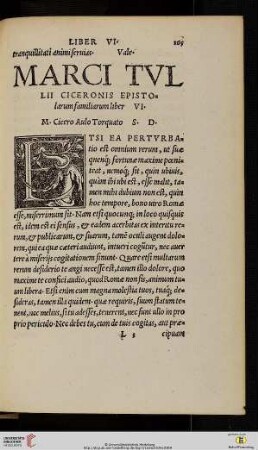 LIBER VI. 169
tranquillitati animi seruias. Vale.
MARCI TVL
LII CICERONIS EPISTO-
larum familiarum liber VI.
M. Cicero Aulo Torquato S. D.
ETSI EA PERTVRBA-
tio est omnium rerum, ut suæ
quenq; fortunæ maxime pœni-
teat, nemoq; sit, quin ubiuis,
quàm ibi ubi est, esse malit, ta-
men mihi dubium non est, quin
hoc tempore, bono uiro Romæ
esse, miserrimum sit. Nam etsi quocunq; in loco quisquis
est, idem est ei sensus, & eadem acerbitas ex interitu re-
rum, & publicarum, & suarum, tamē oculi augent dolo-
rem, qui ea quæ cæteri audiunt, intueri coguntur, nec auer
tere à miserijs cogitationem sinunt. Quare etsi multarum
rerum desiderio te angi necesse est, tamen illo dolore, quo
maxime te confici audio, quòd Romæ non sis, animum tuū
libera. Etsi enim cum magna molestia tuos, tuaq; de-
sideras, tamen illa quidem quæ requiris, suum statum te-
nent, nec melius, si tu adesses, tenerent, nec sunt ullo in pro
prio periculo. Nec debes tu, cum de tuis cogitas, aut præ-
L s cipuam